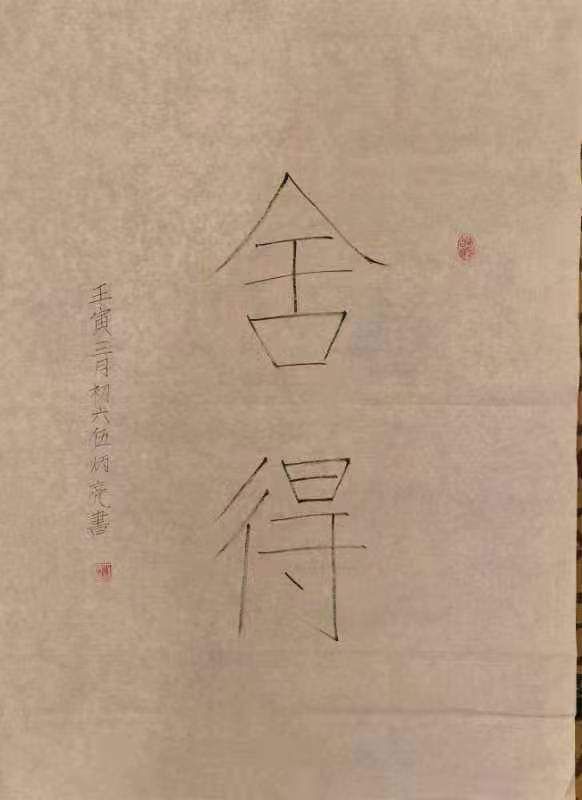 舍得
壬寅三月初六伍炳亮書